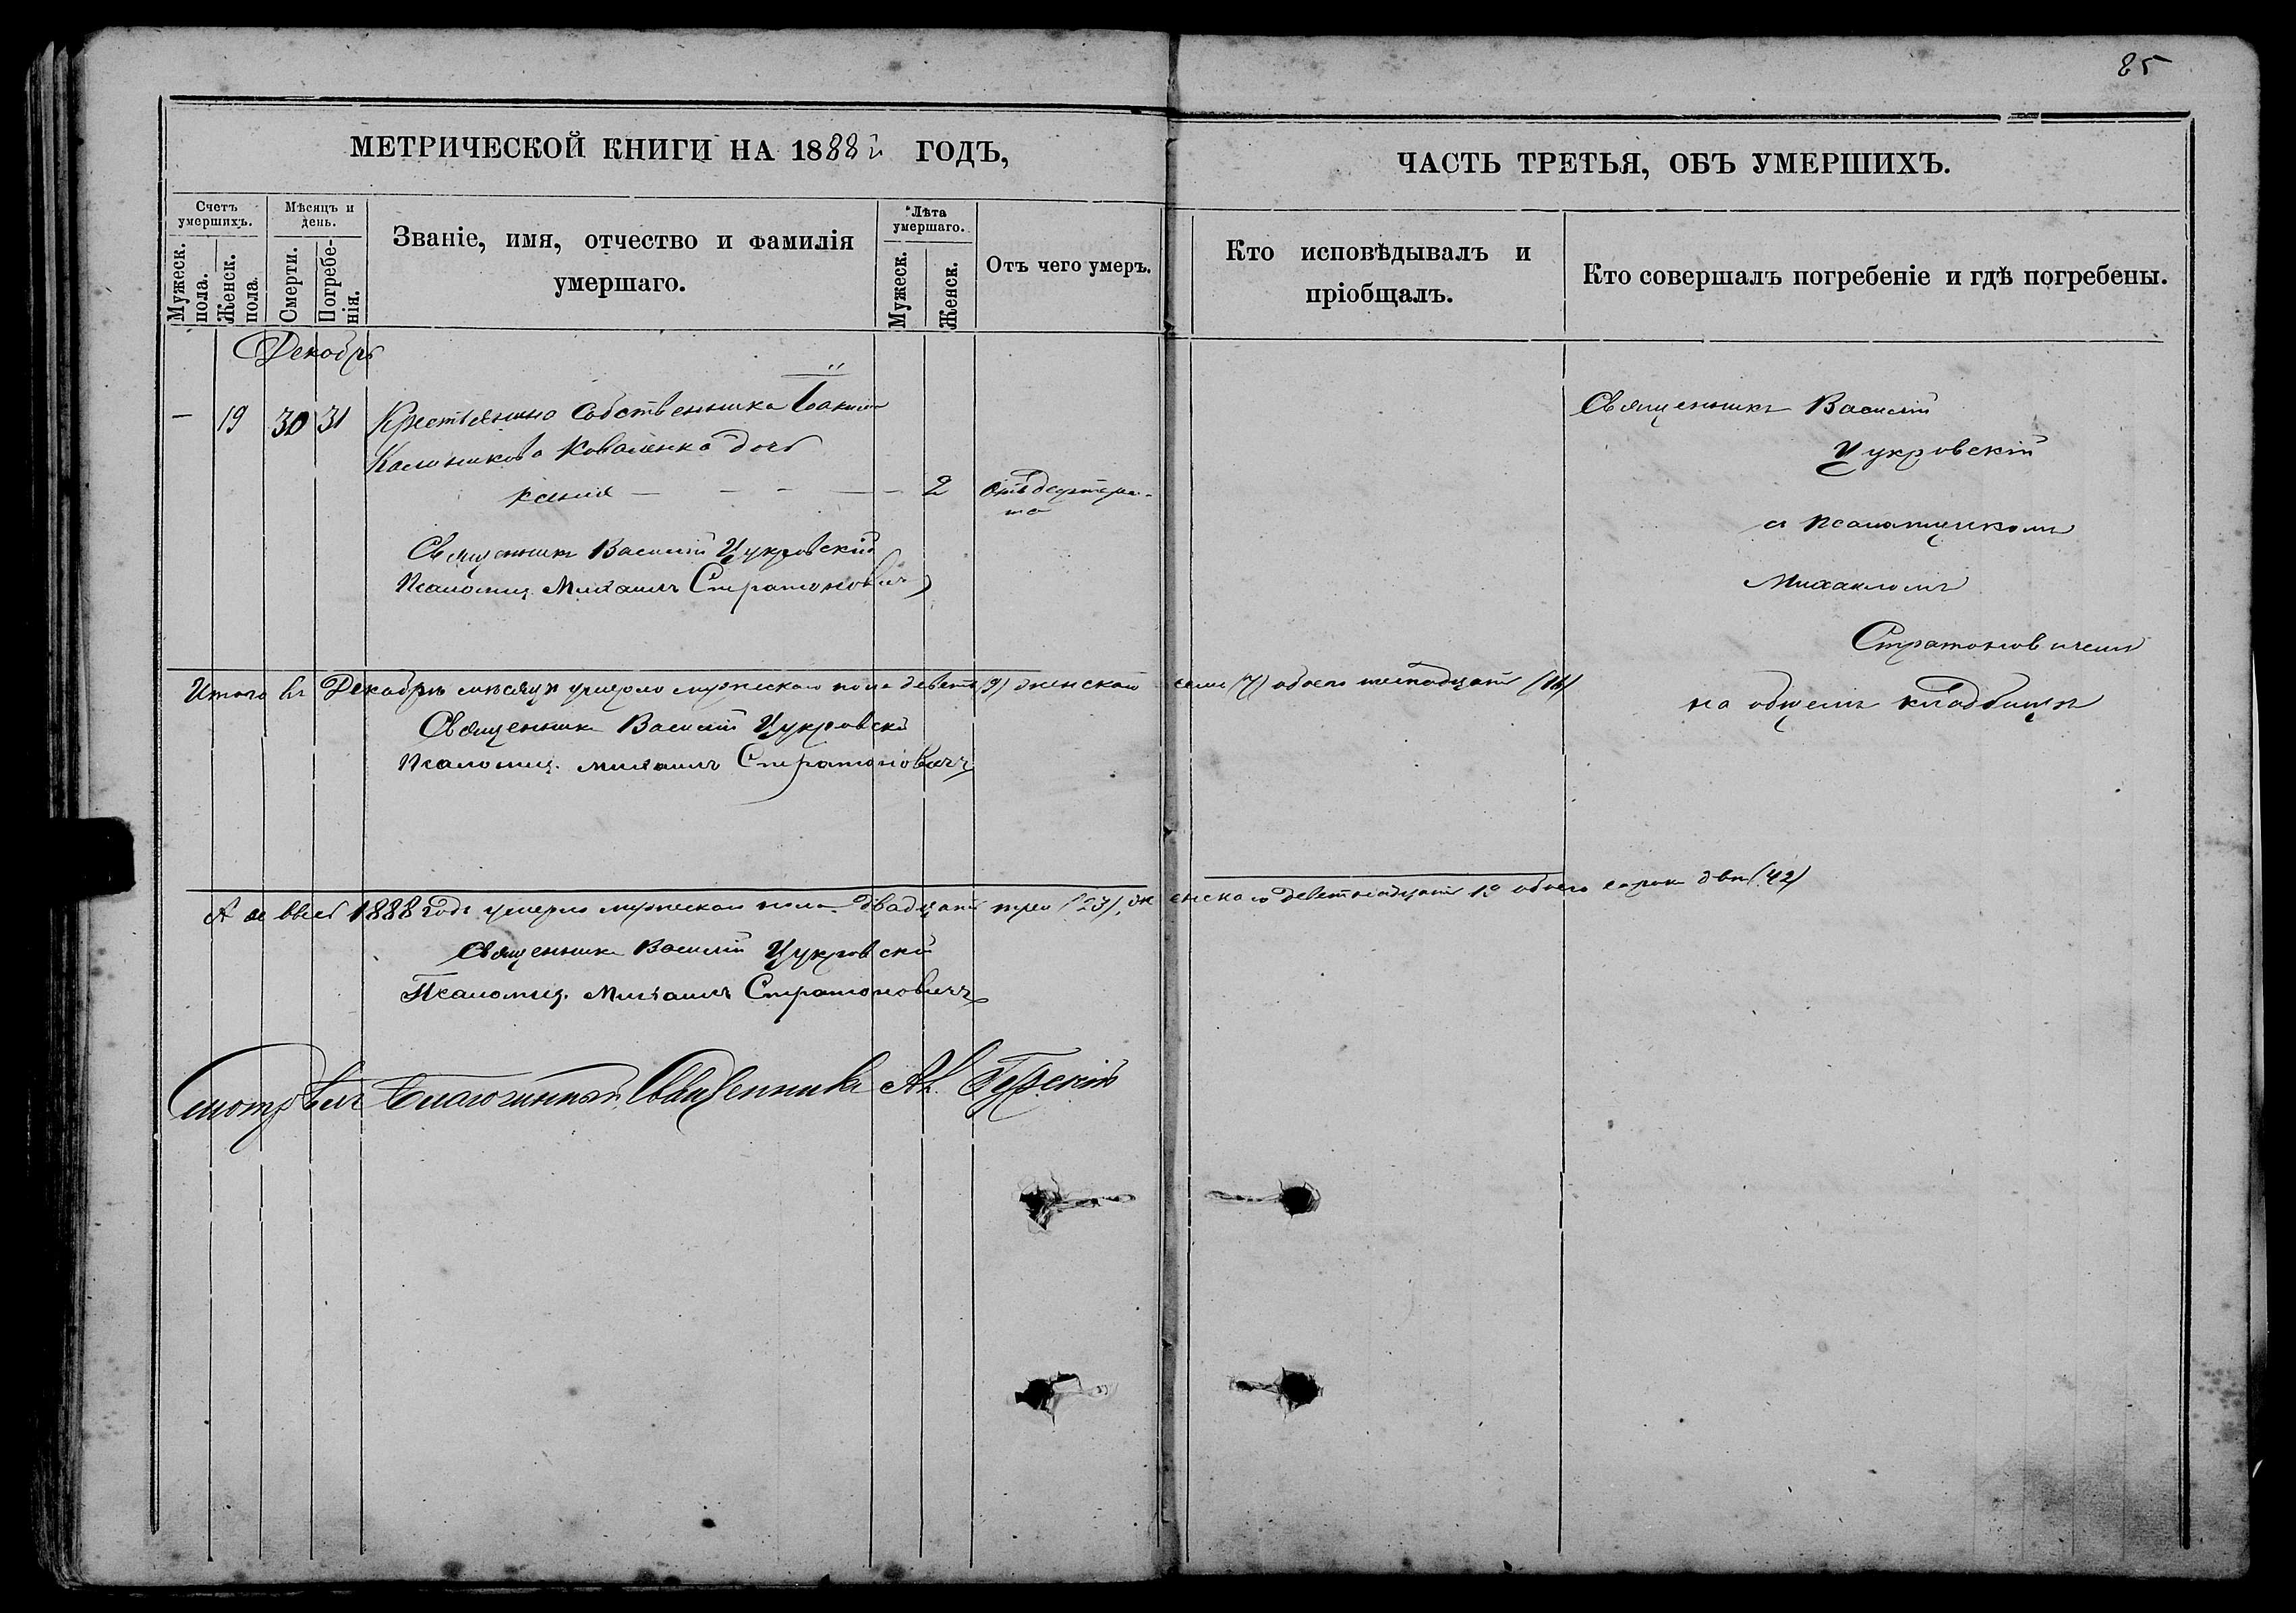 85
МЕТРИЧЕСКОЙ КНИГИ НА 1888й ГОДЪ,
ЧАСТЬ ТРЕТЬЯ, ОБЪ УМЕРШИХЪ.
Счетъ умершихъ.
Мужеск. пола.
Женск. пола.
Мѣсяцъ и день.
Смерти.
Погребе-
нія.
Званіе, имя, отчество и фамилія
умершаго.
Лѣта умершаго.
Мужеск.
Женск.
Отъ чего умеръ.
Кто исповѣдывалъ и
пріобщалъ.
Кто совершалъ погребеніе и гдѣ погребены.
Декабрь
— 19 30 31 Крестьянина Собственника Іоакима
Каленикова Коваленка дочь
Ксенія — - - — - 2 Отъ дифтери-
та
Священникъ Василій Цукровскій
Псаломщ. Михаилъ Стратоновичъ
Священникъ Василій
Цукровскій
съ псаломщикомъ
Михаиломъ
Стратоновичемъ
на общемъ кладбищѣ
Итого въ Декабрѣ мѣсяцѣ умерло мужескаго пола девять (9) женскаго семь (7) обоего шестнадцать (16)
Священникъ Василій Цукровскій
Псаломщ. Михаилъ Стратоновичъ
А во весь 1888 годъ умерло мужеского пола двадцать три (23), женскаго девятнадцать 19 обоего сорок два (42)
Священникъ Василій Цукровскій
Псаломщ. Михаилъ Стратоновичъ
Смотрѣлъ Благочинный Священникъ Ал.